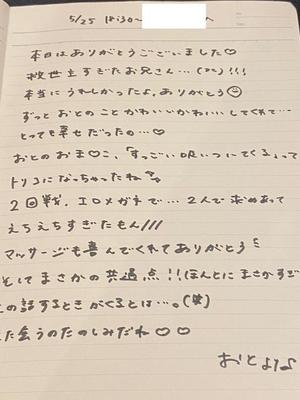 5/25 18:30〜 へ
本日はありがとうございました♡
救世主すぎたお兄さん…(　)!!!
本当にうれしかったよ、ありがとう☺
ずっとおとのことかわいいかわいいしてくれて…
とっても幸せだったの…♡
おとのおま♡こ、「すっごいDRいついてくる」って
トリコになっちゃったね
2回戦、エロメガネで…2人で求めあって
えちえちすぎたもん///
マッサージも喜んでくれてありがとう
そしてまさかの共通点!!ほんとにまさかすぎ
の話するときがくるとは…。(笑)
た会うのたのしみだね♡♡
おとより